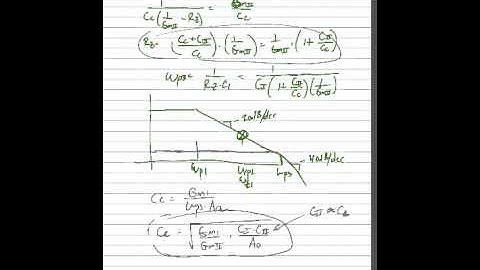 1 / (Cc(1/GmII − Rz)) = GmII / CL
Rz = ((Cc + CII) / Cc) · (1/GmII) = 1/GmII · (1 + CII/Cc)
Wp3 = 1 / (Rz · C1) = 1 / (CI (1 + CII/Cc)(1/GmII))
-20dB/dec
40dB/dec
Wp1
Wp3
Cc = GmI / (Wp3 · Ao)
CII ≈ CL
Cc = √(GmI/GmII · CI · CII / Ao)